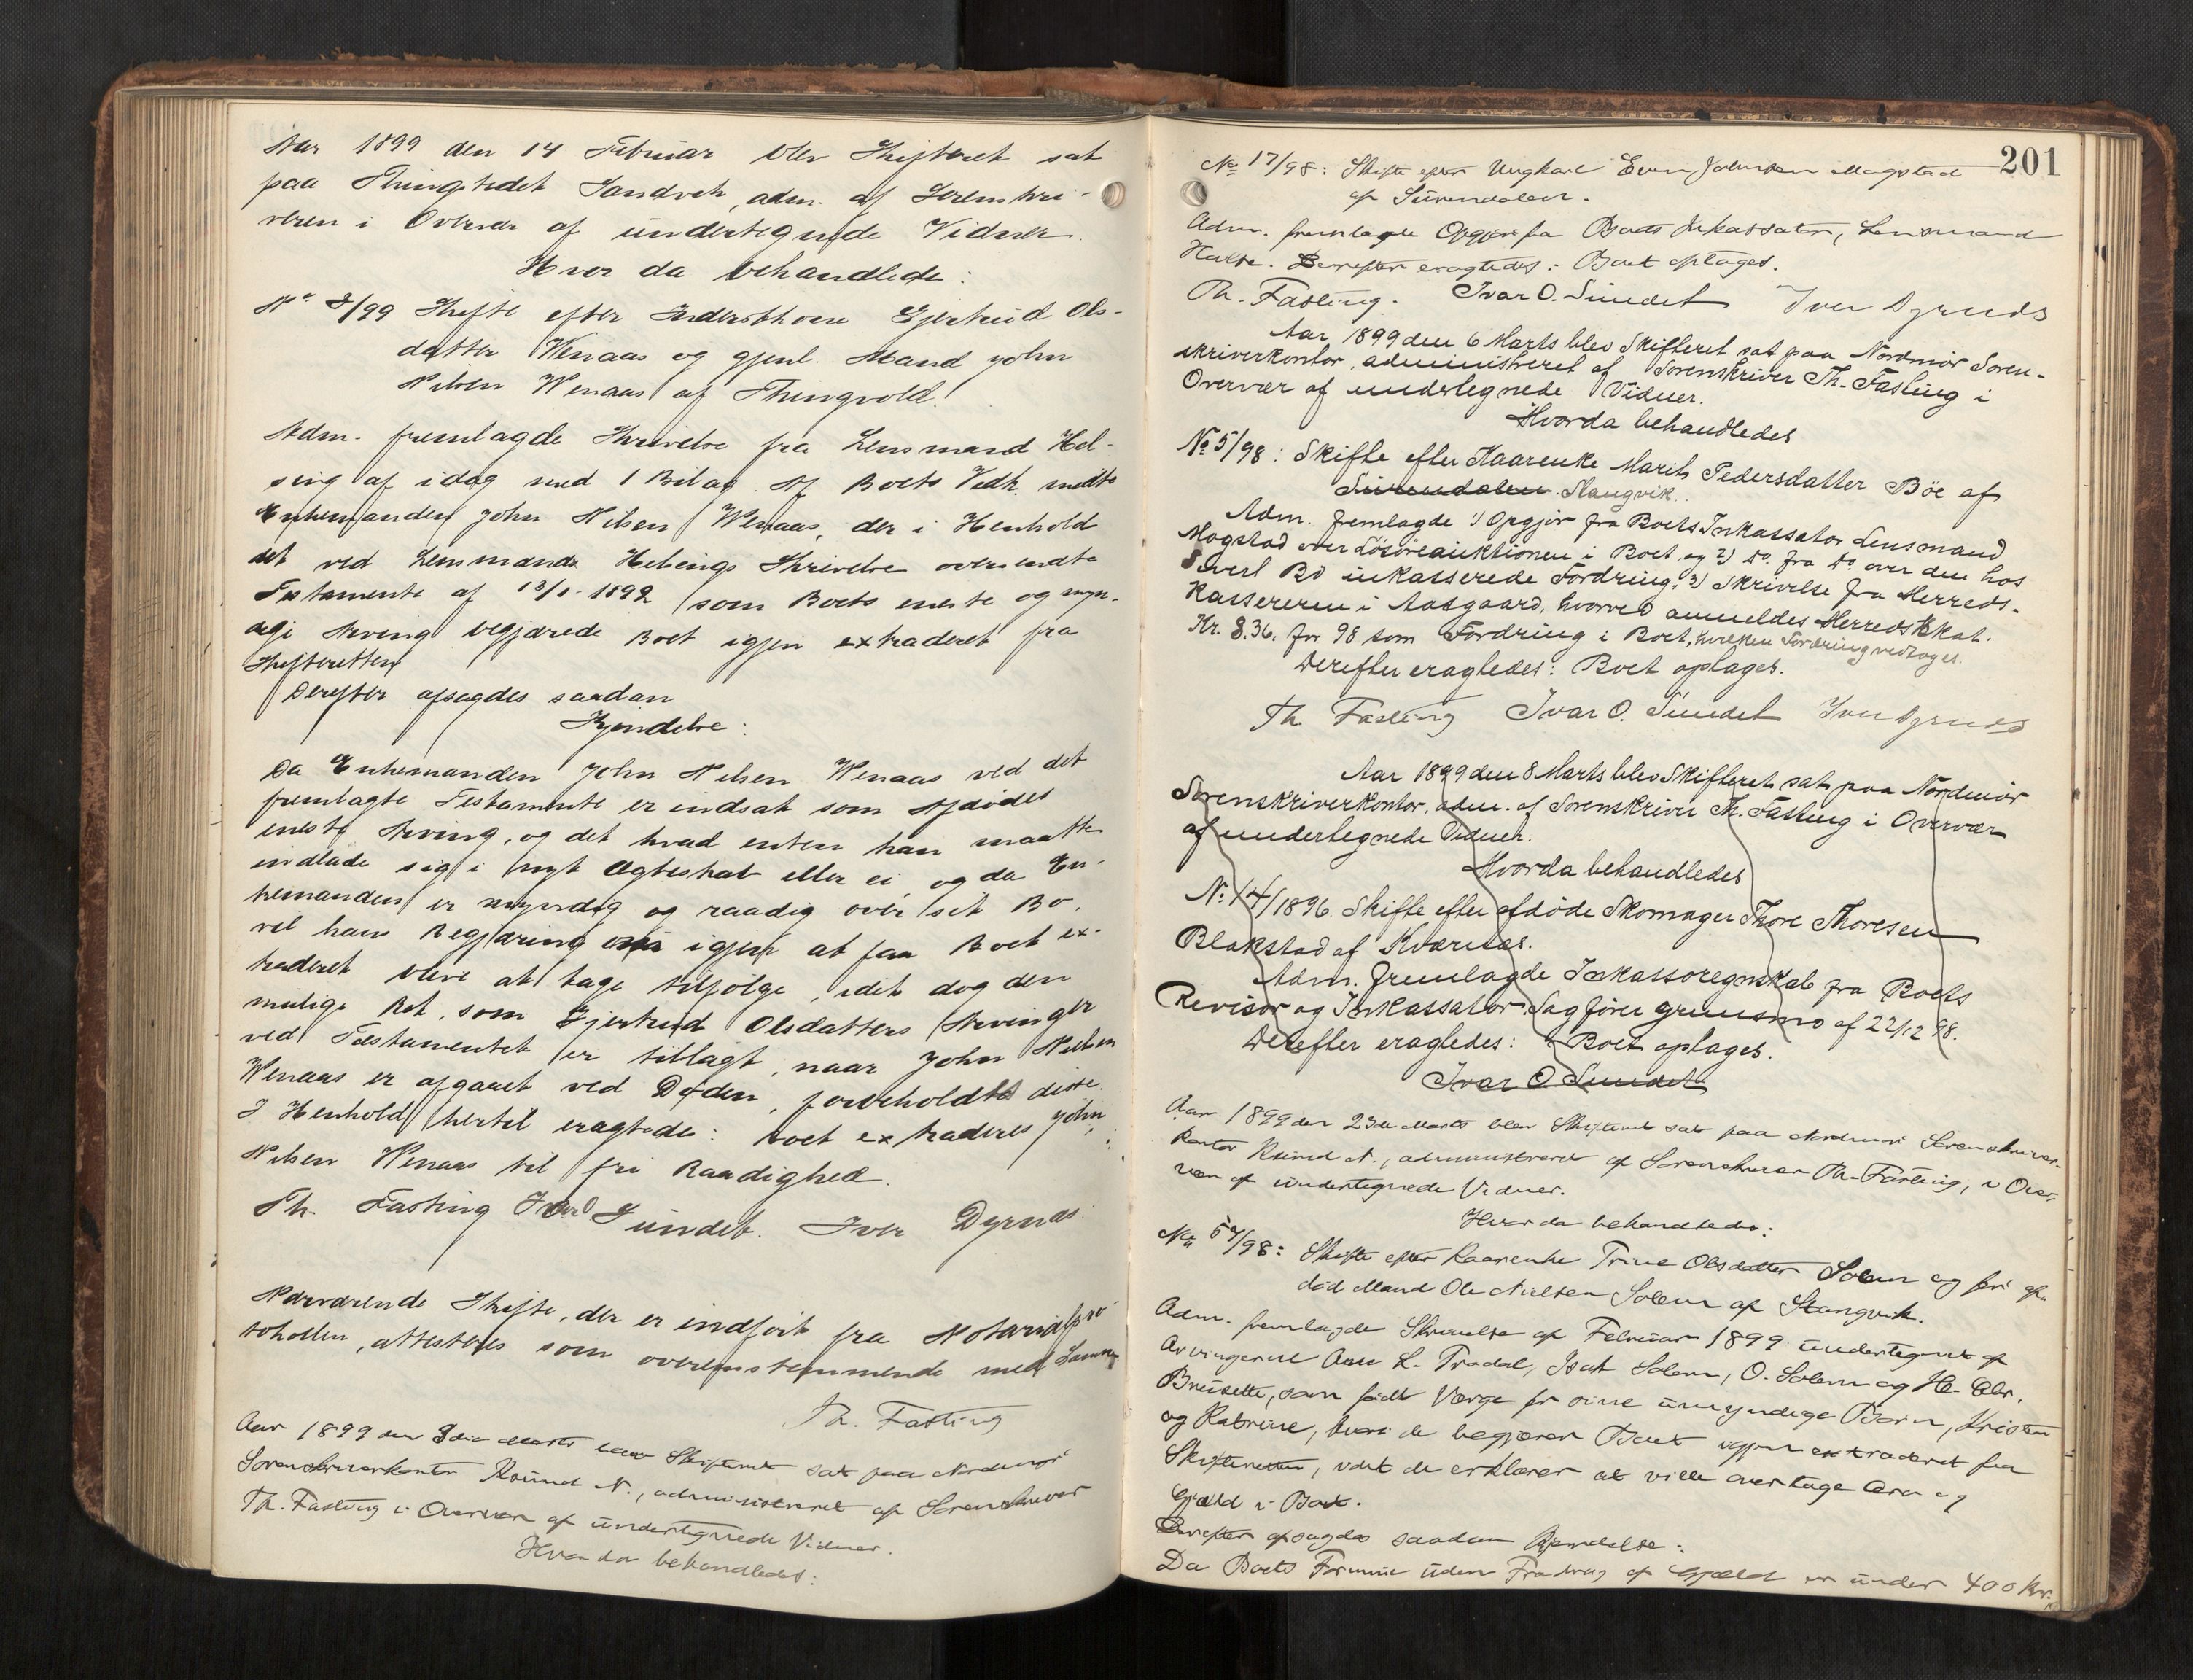 Aar 1899 den 14 Februar blev Skifteret sat
paa Thingstedet Sandvik, adm. af Sorenskri-
veren i Overvær af undertegnede Vidner.
Hvor da behandledes:
No 8/99 Skifte efter Inderstkone Gjertrud Ols-
datter Wenaas og gjenl. Mand John
Nilsen Wenaas af Thingvold.
Adm. fremlagde Skrivelse fra Lensmand Hel-
sing af idag med 1 Bilag. Af Boets Vedk. mødte
Enkemanden John Nilsen Wenaas, der i Henhold
det ved Lensmand Helsings Skrivelse oversendte
Testamente af 13/1 1892 som Boets eneste og myn-
dige Arving begjærede Boet igjen extraderet fra
Skifteretten
Derefter afsagdes saadan
Kjendelse:
Da Enkemanden John Nilsen Wenaas ved det
fremlagte Testamente er indsat som Afdødes
eneste Arving, og det hvad enten han maatte
indlade sig i nyt Ægteskab eller ei, og da En-
kemanden er myndig og raadig over sit Bo,
vil hans Begjæring om igjen at faa Boet ex-
traderet blive at tage tilfølge, idet dog den
mulige Ret, som Gjertrud Olsdatters Arvinger
ved Testamentet er tillagt, naar John Nilsen
Wenaas er afgaaet ved Døden, forbeholdes disse.
I Henhold hertil eragtedes: Boet extraderes John
Nilsen Wenaas til fri Raadighed.
Th. Fasting Ivar O Sundet. Iver Dyrnes.
Nærværende Skifte, der er indført fra Notarialpro
tokollen, attesteres som overensstemmende med Samme
Th. Fasting
Aar 1899 den 3die Marts blev Skifteret sat paa Nordmøre
Sorenskriverkontor Kristiansund N., administreret af Sorenskriver
Th. Fasting i Overvær af undertegnede Vidner.
Hvor da behandledes:
201
No 17/98: Skifte efter Ungkarl Even Johnsen Mogstad
af Surendalen.
Adm. fremlagde Opgjør fra Boets Inkassator, Lensmand
Halse. Derefter eragtedes: Boet optages.
Th. Fasting. Ivar O. Sundet Iver Dyrnes
Aar 1899 den 6 Marts blev Skifteret sat paa Nordmør Soren-
skriverkontor, administreret af Sorenskriver Th. Fasting i
Overvær af undertegnede Vidner.
Hvorda behandledes
No 5/98: Skifte efter Kaarenke Marit Pedersdatter Böe af
Surendalen. Stangvik.
Adm. fremlagde 1) Opgjør fra Boets Inkassator Lensmand
Mogstad over Løsøreauktionen i Boet og 2) Do. fra Do over den hos
Sivert Bö inkasserede Fordring. 3) Skrivelse fra Herreds-
Kassereren i Aasgaard, hvorved anmeldes Herredsskat.
Kr. 8.36. for 98 som Fordring i Boet, hvilken Fordring vedtoges.
Derefter eragtedes: Boet optages.
Th. Fasting Ivar O. Sundet Iver Dyrnes
Aar 1899 den 8 Marts blev Skifteret sat paa Nordmör
Sorenskriverkontor, adm. af Sorenskriver Th. Fasting i Overvær
af undertegnede Vidner.
Hvorda behandledes
No. 14/1896. Skifte efter afdöde Skomager Thore Thoresen
Blakstad af Kværnes.
Adm. fremlagde Inkassoregnskab fra Boets
Revisor og Inkassator Sagförer Gruusmo af 22/12 98.
Derefter eragtedes: Boet optages.
Ivar O Sundet
Aar 1899 den 23de Marts blev Skifteret sat paa Nordmøre Sorenskriver-
kontor Krsund N., administreret af Sorenskriver Th. Fasting, i Over-
vær af undertegnede Vidner.
Hvor da behandledes:
No 57/98: Skifte efter Kaarenke Trine Olsdatter Solem og før af-
død Mand Ole Nielsen Solem af Stangvik.
Adm. fremlagde Skrivelse af Februar 1899 undertegnet af
Arvingerne Anne L. Trødal, Isak Solem, O. Solem og H.
Bruset, som født Værge for sine umyndige Børn, Kristen
og Katrine, hvori de begjærer Boet igjen extraderet fra
Skifteretten, idet de erklærer at ville overtage Arv og
Gjæld i Boet.
Derefter afsagdes saadan Kjendelse:
Da Boets Formue uden Fradrag af Gjæld er under 400 Kr.